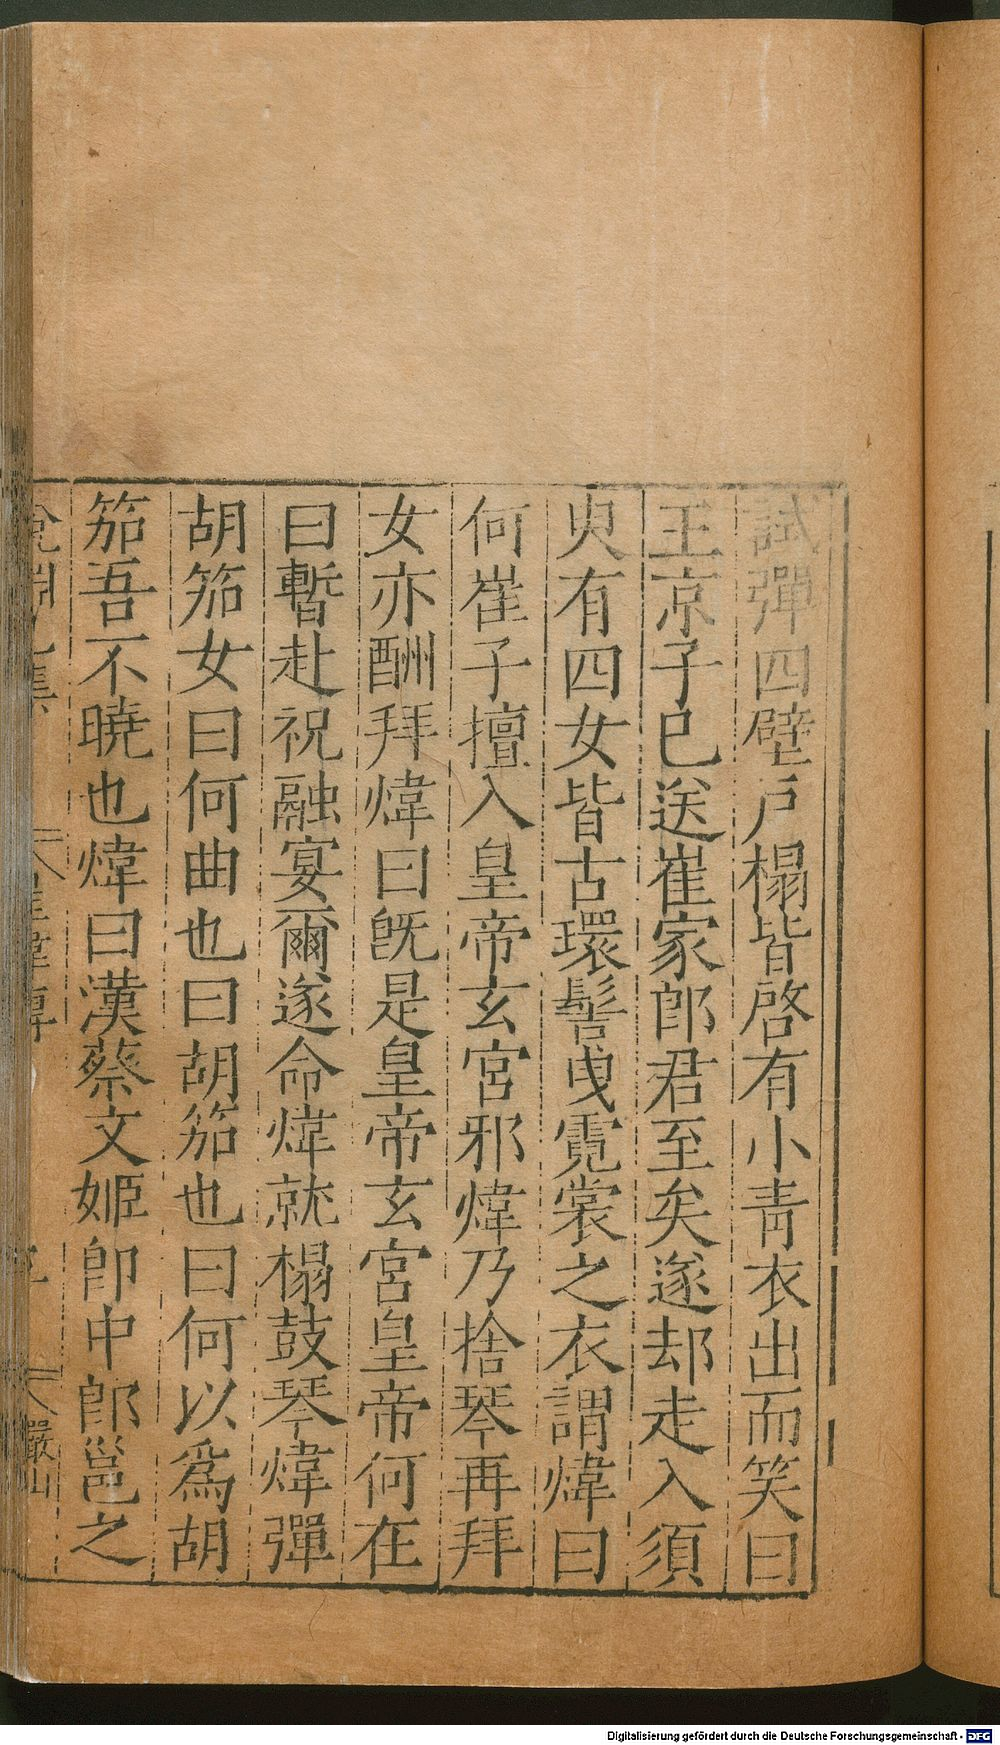 試彈四壁戸榻皆啓有小青衣出而笑曰
王京子已送崔家郎君至矣遂却走入須
臾有四女皆古環髻曳霓裳之衣謂煒曰
何崔子擅入皇帝玄宮邪煒乃捨琴再拜
女亦酬拜煒曰既是皇帝玄宮皇帝何在
曰暫赴祝融宴爾遂命煒就榻鼓琴煒彈
胡笳女曰何曲也曰胡笳也曰何以爲胡
笳吾不曉也煒曰漢蔡文姬即中郎邕之
嚴山
Digitalisierung gefördert durch die Deutsche Forschungsgemeinschaft - DFG